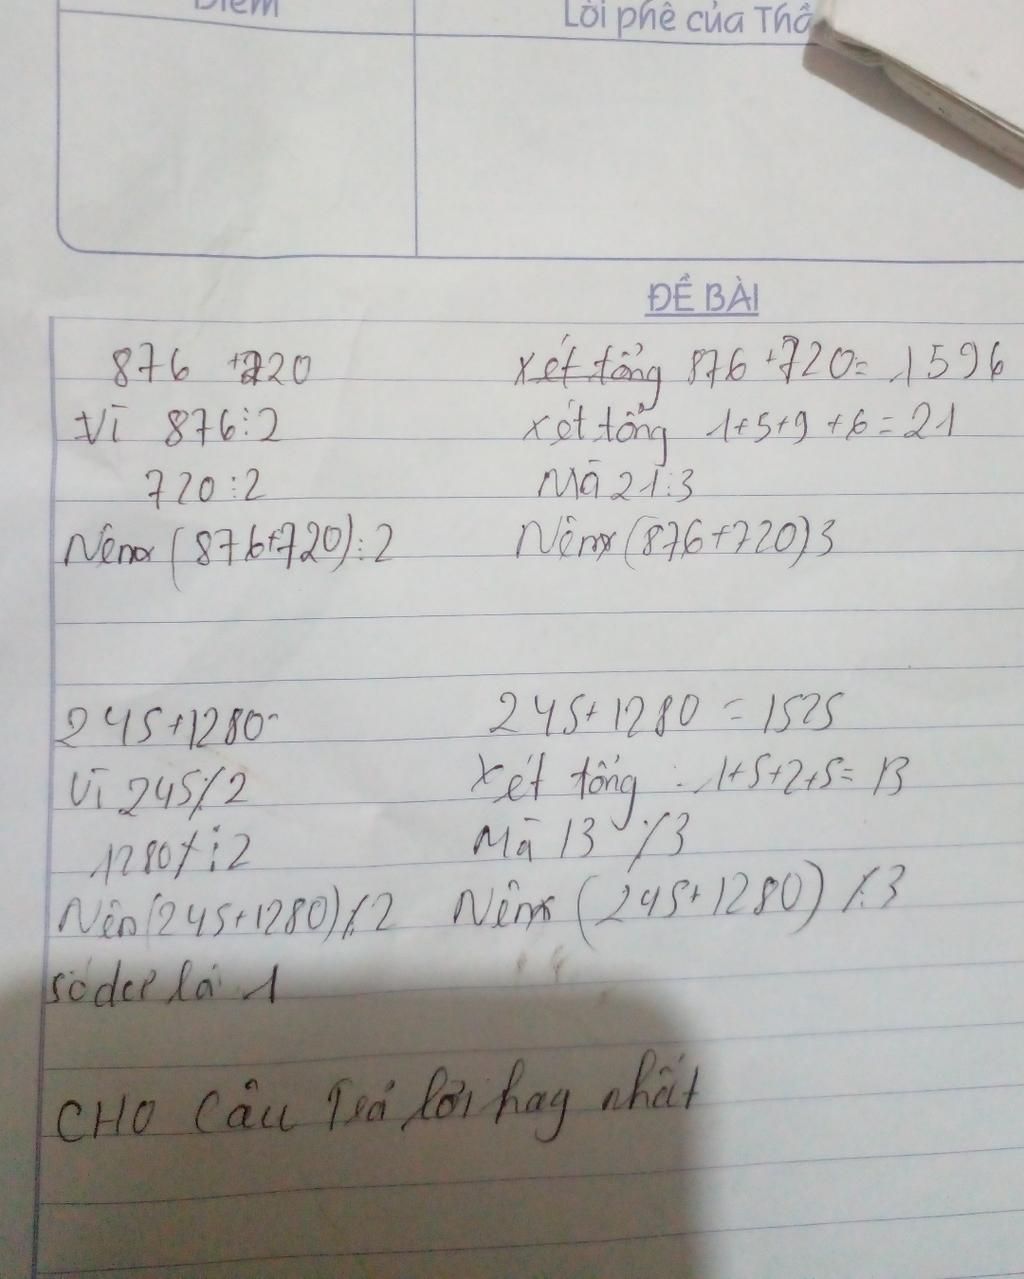 Điểm
Lời phê của Thầ
ĐỀ BÀI
876 +720
Vì 876⋮2
720⋮2
Nên (876+720)⋮2
Xét tổng 876+720= 1596
xét tổng 1+5+9+6=21
Mà 21⋮3
Nên (876+720) 3
245+1280
Vì 245⋮̸2
1280⋮2
Nên (245+1280)⋮̸2
số dư là 1
245+1280 = 1525
Xét tổng : 1+5+2+5= 13
Mà 13 ⋮̸3
Nên (245+1280) ⋮̸3
CHO Câu Trả lời hay nhất